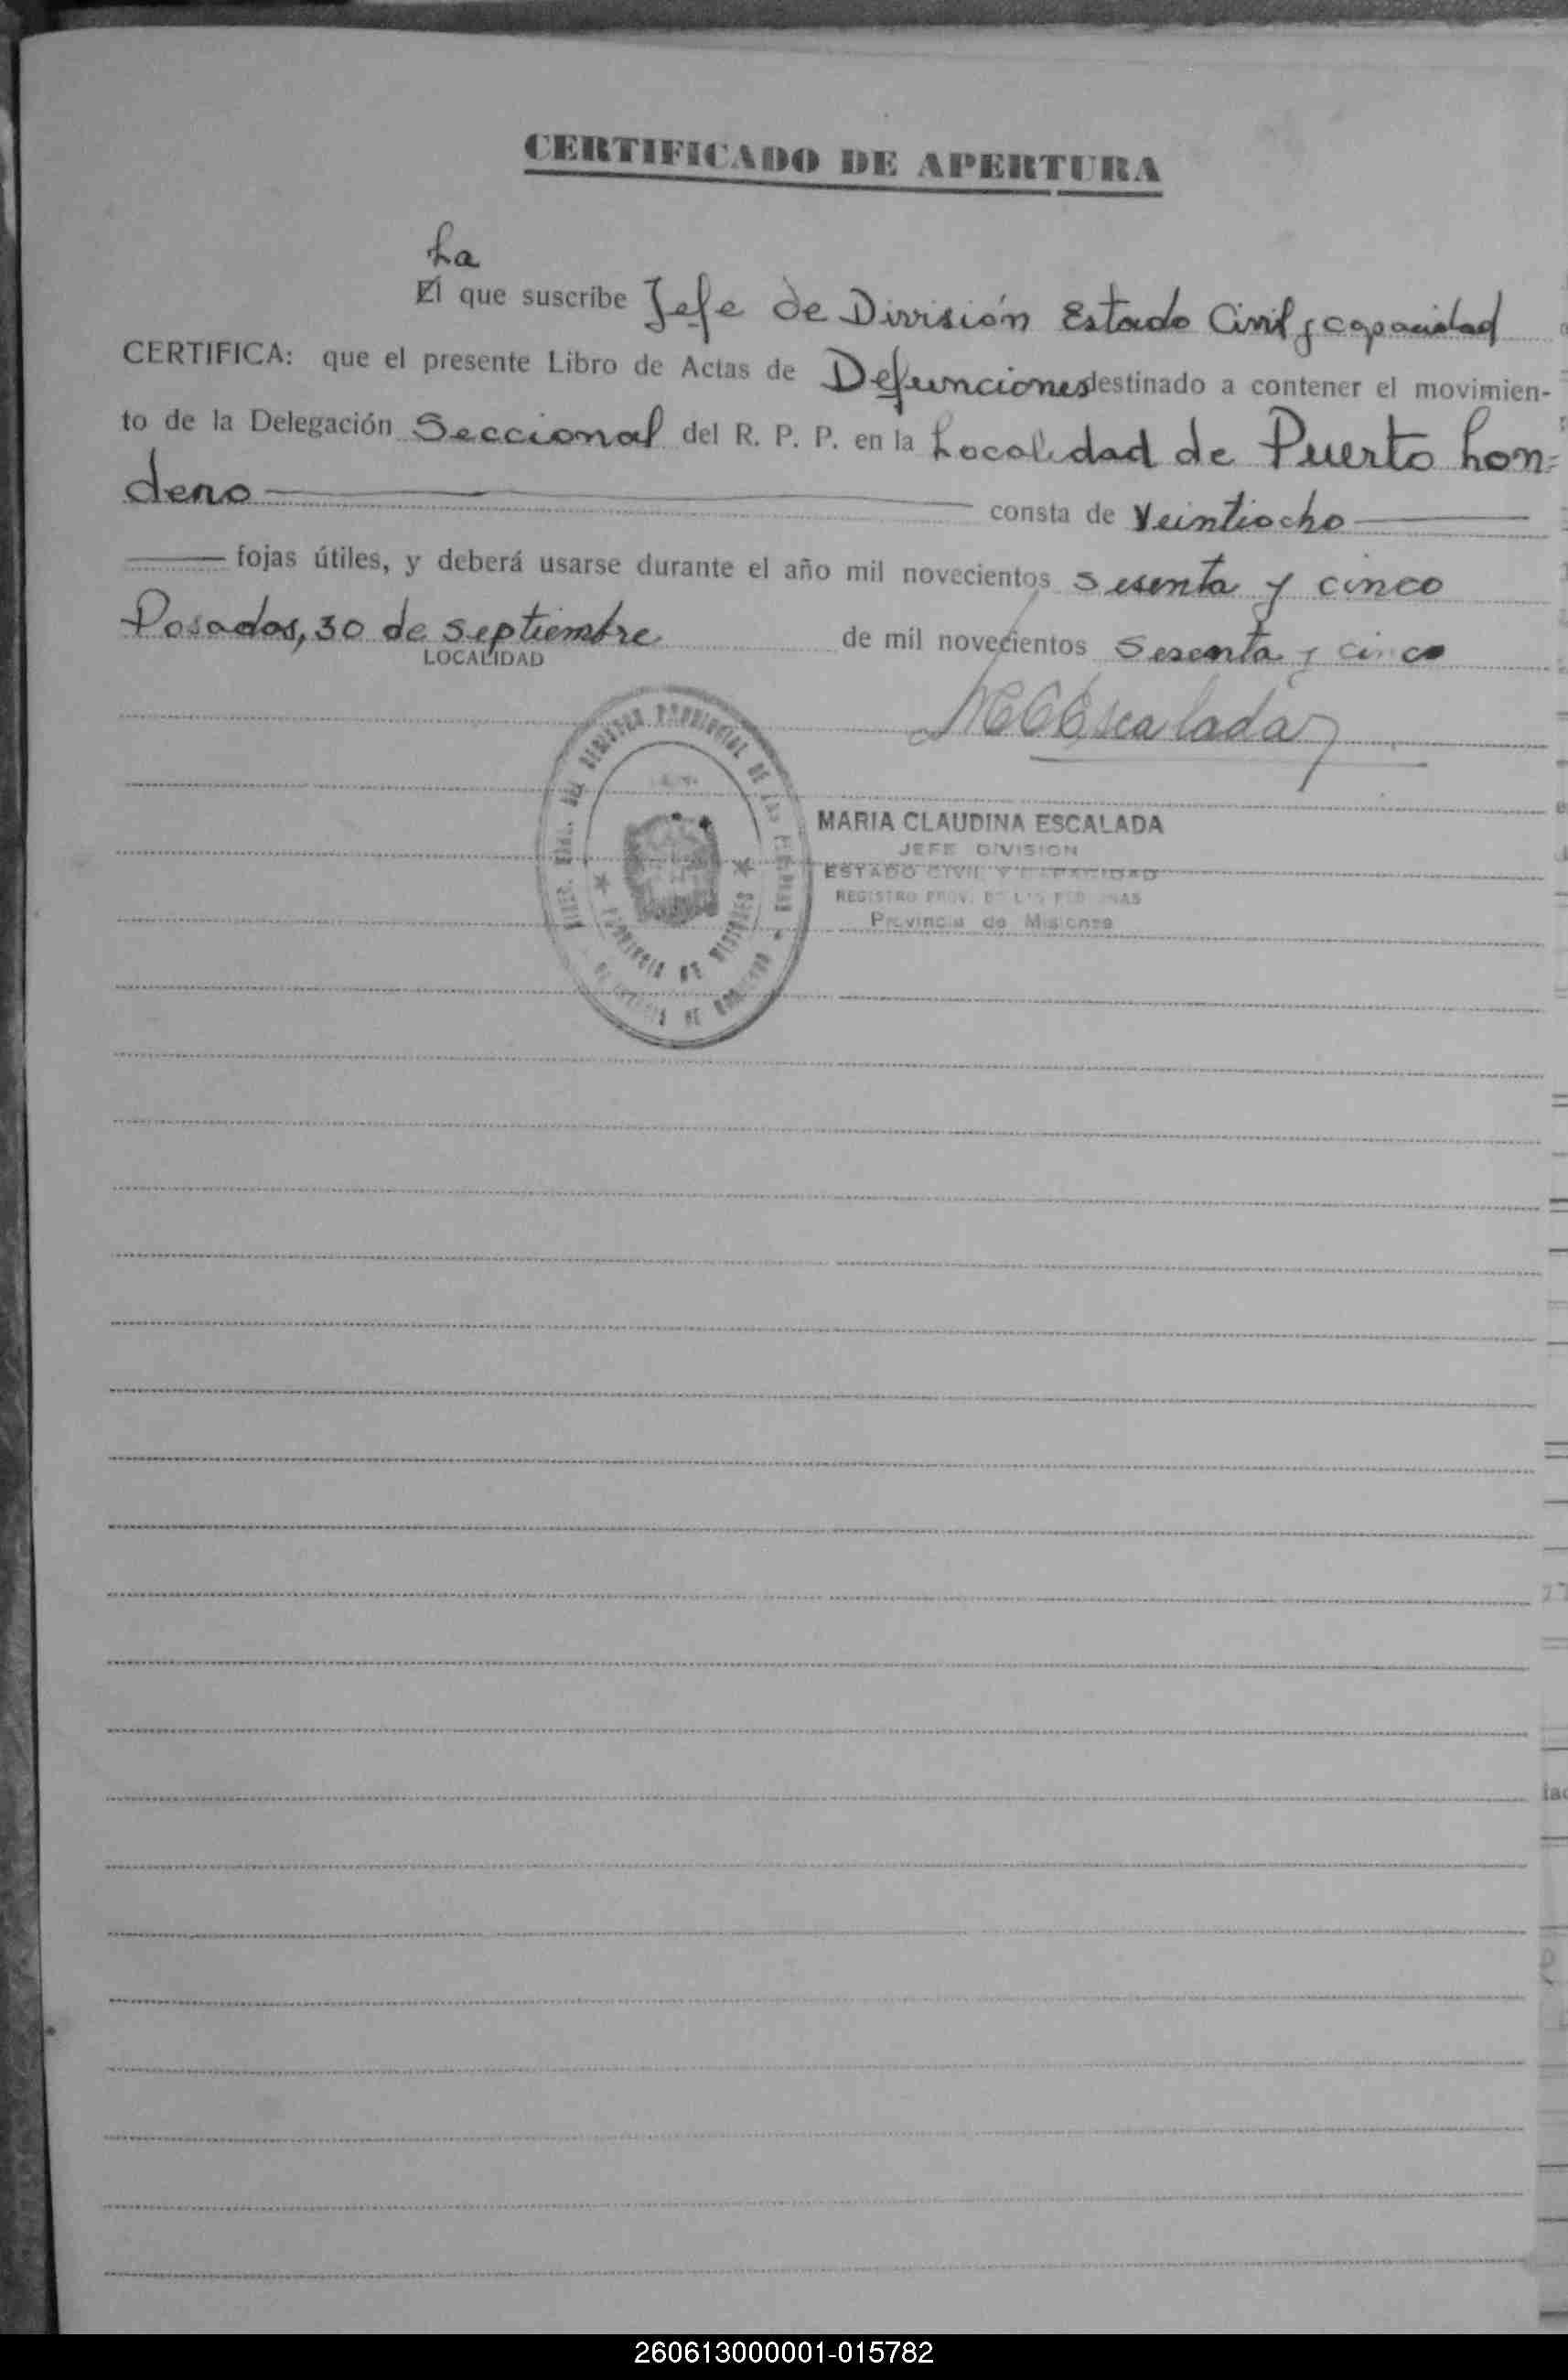 CERTIFICADO DE APERTURA
La
El que suscribe Jefe de División Estado Civil y capacidad
CERTIFICA: que el presente Libro de Actas de Defunciones destinado a contener el movimien-
to de la Delegación Seccional del R. P. P. en la Localidad de Puerto Lon-
deno consta de Veintiocho
fojas útiles, y deberá usarse durante el año mil novecientos sesenta y cinco
Posadas, 30 de septiembre de mil novecientos sesenta y cinco
LOCALIDAD
MCEscalada
MARIA CLAUDINA ESCALADA
JEFE DIVISION
ESTADO CIVIL Y CAPACIDAD
REGISTRO PROV. DE LAS PERSONAS
Provincia de Misiones
REGISTRO PROVINCIAL DE LAS PERSONAS
PROVINCIA DE MISIONES
260613000001-015782